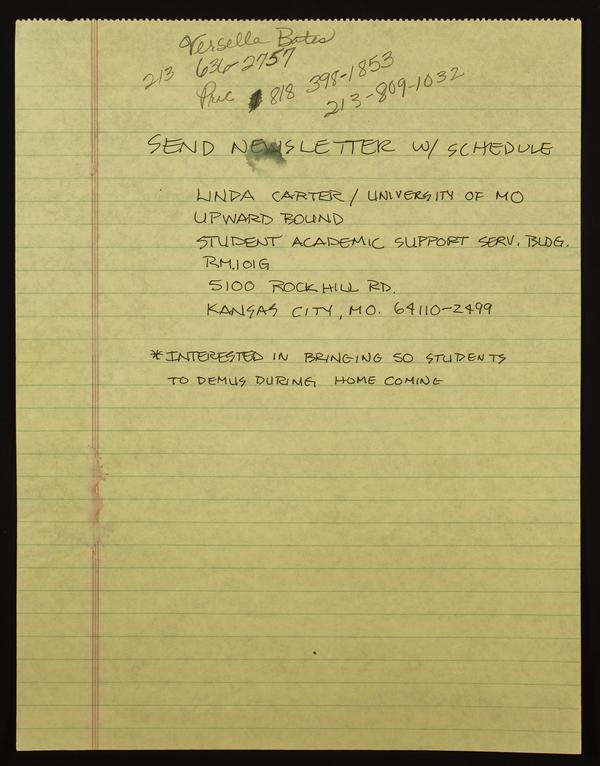 Versella Bates
213 636-2757
818 398-1853
213-809-1032
SEND NEWSLETTER W/ SCHEDULE
LINDA CARTER / UNIVERSITY OF MO
UPWARD BOUND
STUDENT ACADEMIC SUPPORT SERV. BLDG.
RM.101G
5100 ROCKHILL RD.
KANSAS CITY, MO. 64110-2499
*INTERESTED IN BRINGING 50 STUDENTS
TO DEMUS DURING HOME COMING